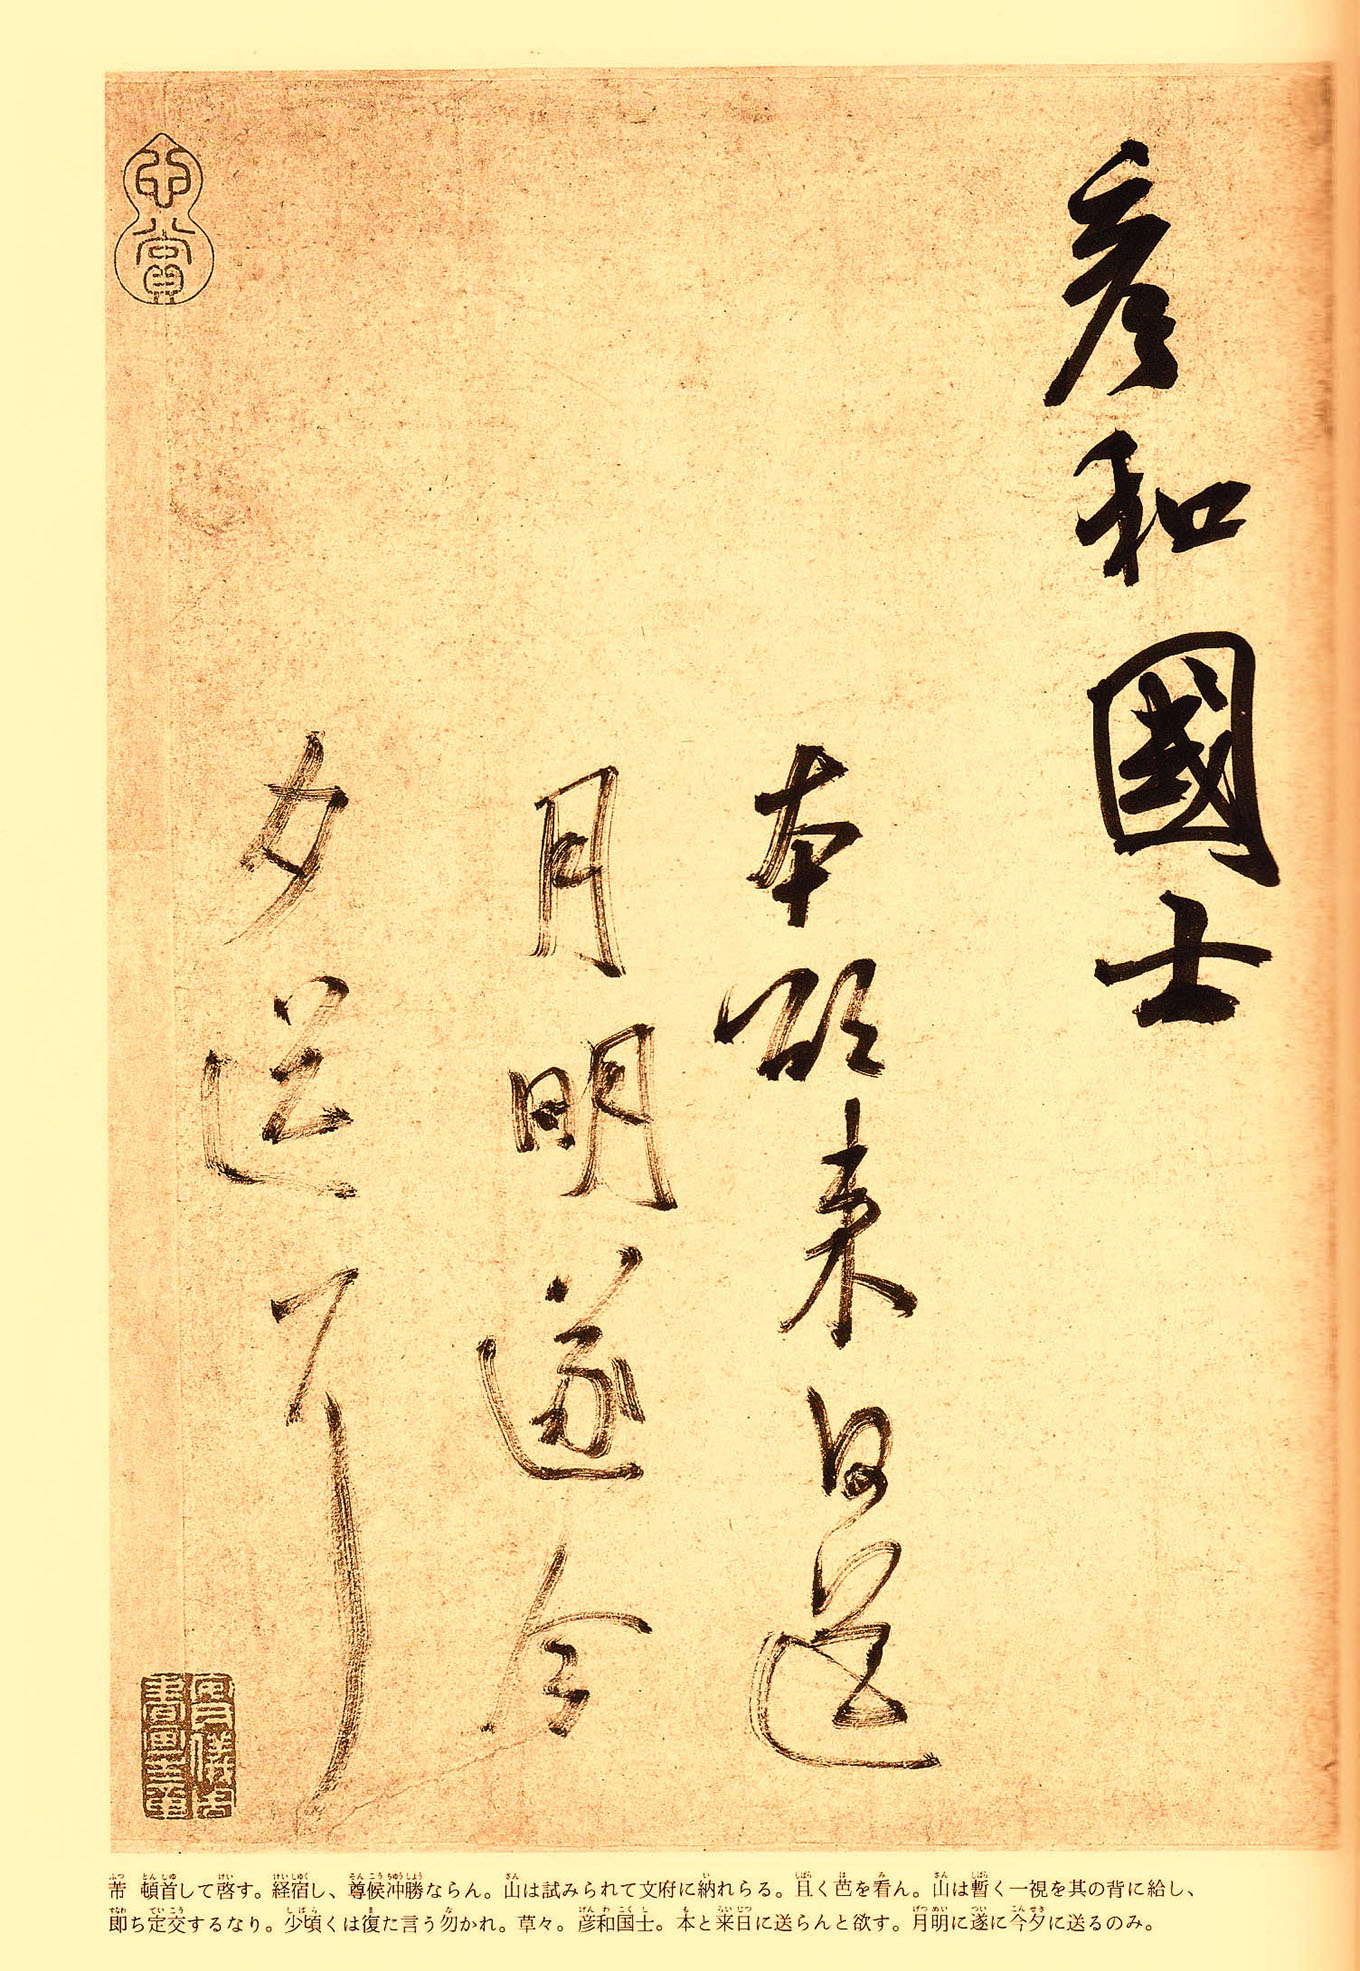 彦和國士
本欲来日送
月明遂今
夕送耳
心賞
安儀周
書畫之章
芾 頓首して啓す。経宿し、尊候冲勝ならん。山は試みられて文府に納れらる。且く芭を看ん。山は暫く一視を其の背に給し、
即ち定交するなり。少頃くは復た言う勿かれ。草々。彦和国士。本と来日に送らんと欲す。月明に遂に今夕に送るのみ。